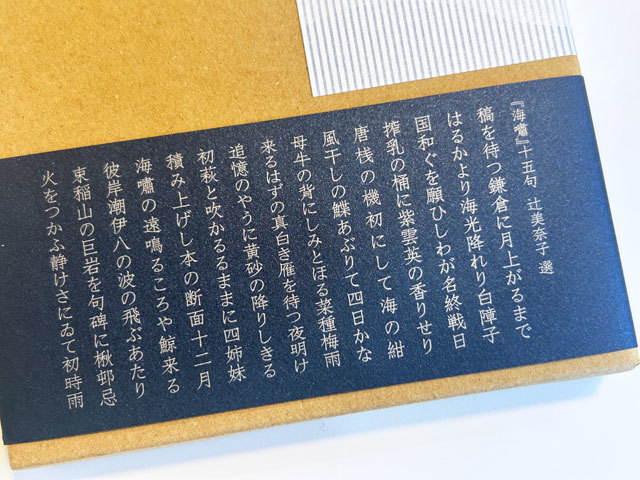 『海嘯』十五句　辻美奈子 選
稿を待つ鎌倉に月上がるまで
はるかより海光降れり白障子
国和ぐを願ひしわが名終戦日
搾乳の桶に紫雲英の香りせり
唐桟の機初にして海の紺
風干しの鰈あぶりて四日かな
母牛の背にしみとほる菜種梅雨
来るはずの真白き雁を待つ夜明け
追憶のやうに黄砂の降りしきる
初萩と吹かるるままに四姉妹
積み上げし本の断面十二月
海嘯の遠鳴るころや鯨来る
彼岸潮伊八の波の飛ぶあたり
束稲山の巨岩を句碑に楸邨忌
火をつかふ静けさにゐて初時雨